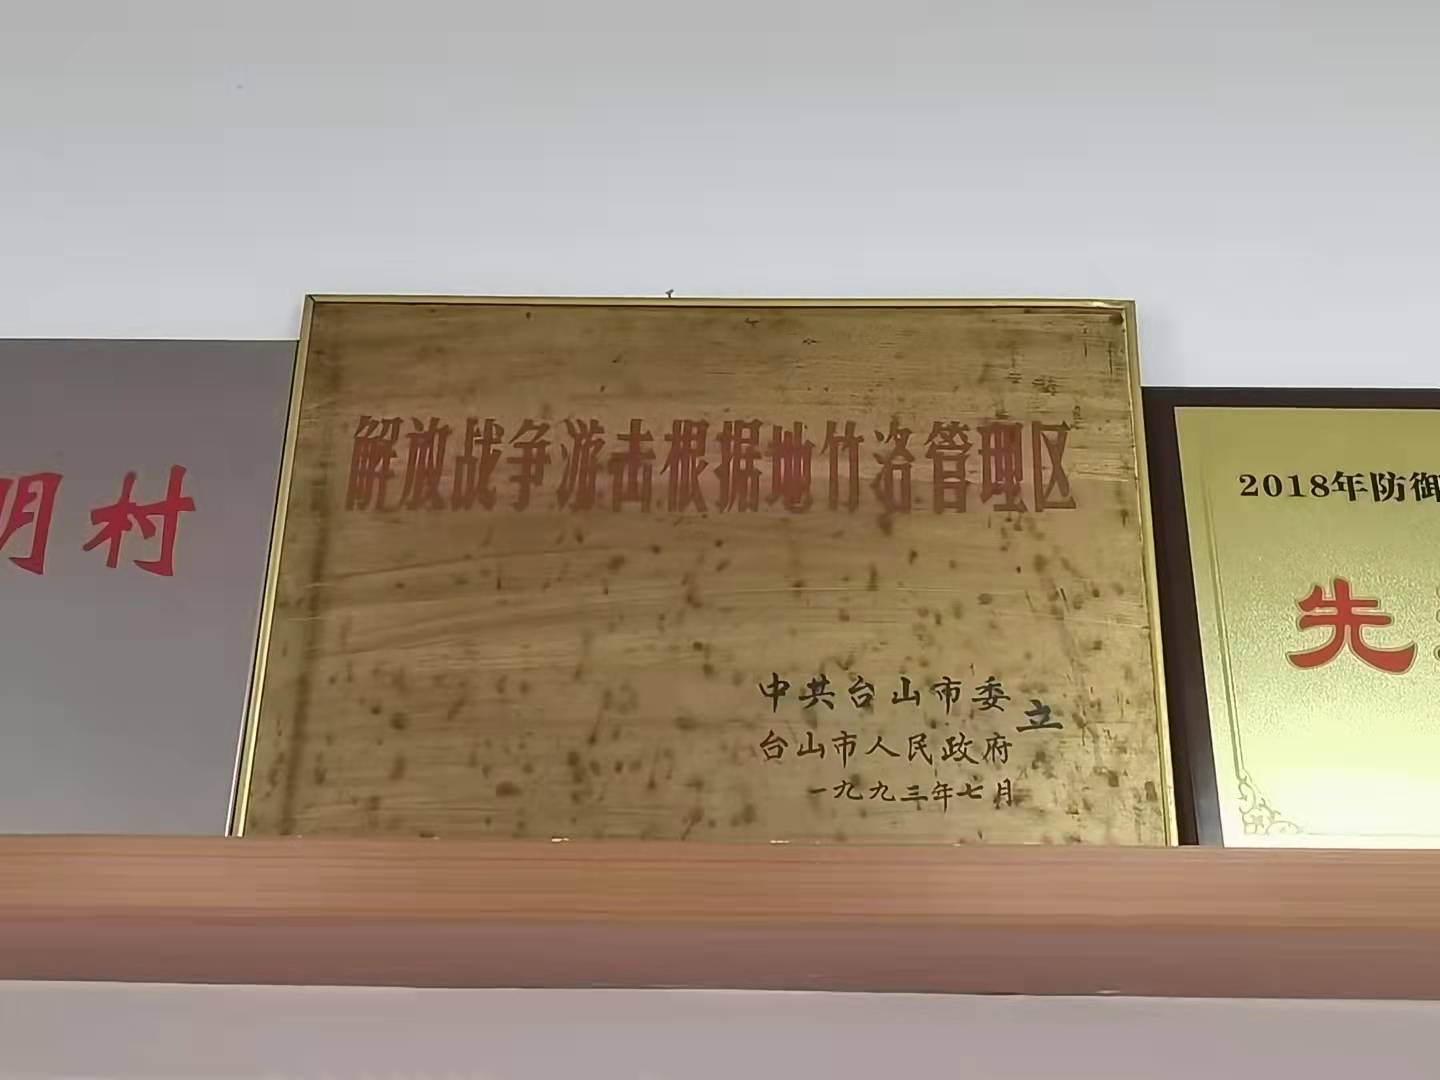 明村
解放战争游击根据地竹洛管理区
中共台山市委
台山市人民政府
立
一九九三年七月
2018年防御
先